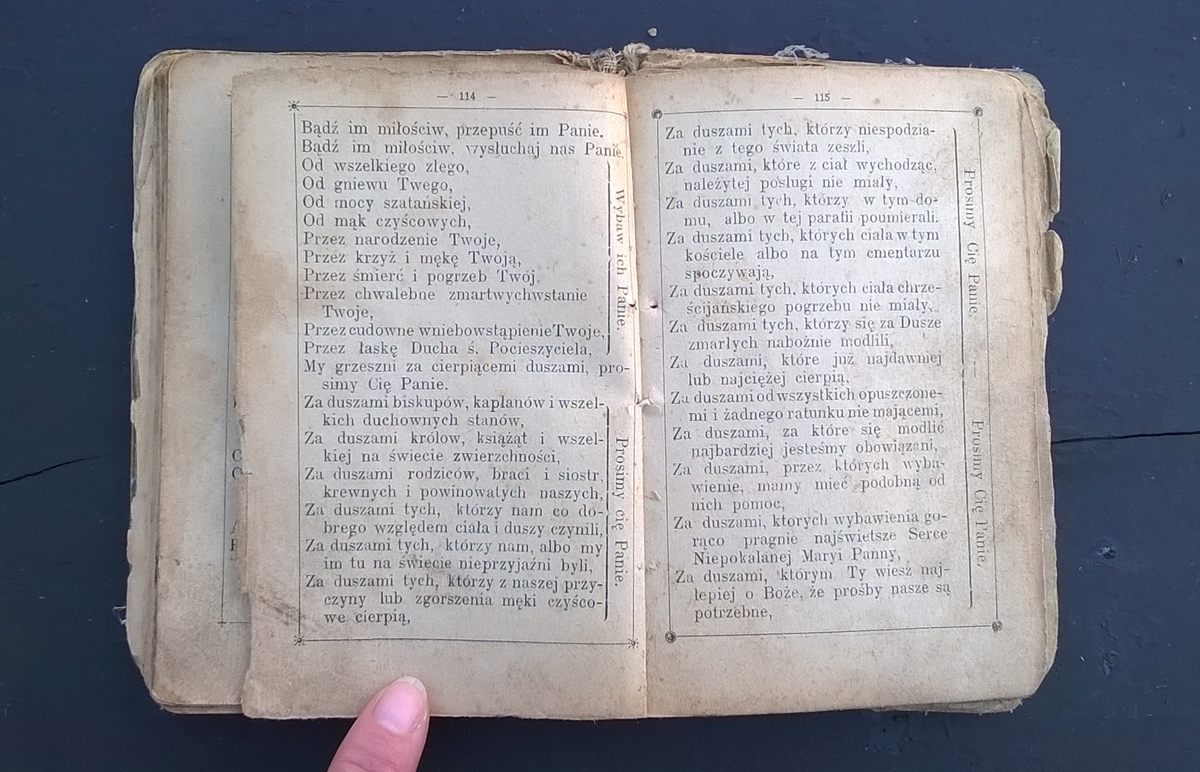 — 114 —
Bądź im miłościw, przepuść im Panie.
Bądź im miłościw, wysłuchaj nas Panie.
Od wszelkiego złego,
Od gniewu Twego,
Od mocy szatańskiej,
Od mąk czyścowych,
Przez narodzenie Twoje,
Przez krzyż i mękę Twoją,
Przez śmierć i pogrzeb Twój.
Przez chwalebne zmartwychwstanie
Twoje,
Przez cudowne wniebowstąpienie Twoje,
Przez łaskę Ducha ś. Pocieszyciela,
Wybaw ich Panie.
My grzeszni za cierpiącemi duszami, pro-
simy Cię Panie.
Za duszami biskupów, kapłanów i wszel-
kich duchownych stanów,
Za duszami królow, książąt i wszel-
kiej na świecie zwierzchności,
Za duszami rodziców, braci i siostr,
krewnych i powinowatych naszych,
Za duszami tych, którzy nam co do-
brego względem ciała i duszy czynili,
Za duszami tych, którzy nam, albo my
im tu na świecie nieprzyjaźni byli,
Za duszami tych, którzy z naszej przy-
czyny lub zgorszenia męki czyśco-
we cierpią,
Prosimy cię Panie.
— 115 —
Za duszami tych, którzy niespodzia-
nie z tego świata zeszli,
Za duszami, które z ciał wychodząc,
należytej posługi nie miały,
Za duszami tych, którzy w tym do-
mu, albo w tej parafii poumierali.
Za duszami tych, których ciała w tym
kościele albo na tym cmentarzu
spoczywają,
Za duszami tych, których ciała chrze-
ścijańskiego pogrzebu nie miały,
Za duszami tych, którzy się za Dusze
zmarłych nabożnie modlili,
Za duszami, które już najdawniej
lub najciężej cierpią,
Za duszami od wszystkich opuszczone-
mi i żadnego ratunku nie mającemi,
Za duszami, za które się modlić
najbardziej jesteśmy obowiązani,
Za duszami, przez których wyba-
wienie, mamy mieć podobną od
nich pomoc,
Za duszami, ktorych wybawienia go-
rąco pragnie najświetsze Serce
Niepokalanej Maryi Panny,
Za duszami, którym Ty wiesz naj-
lepiej o Boże, że prośby nasze są
potrzebne,
Prosimy Cię Panie. — Prosimy Cię Panie.